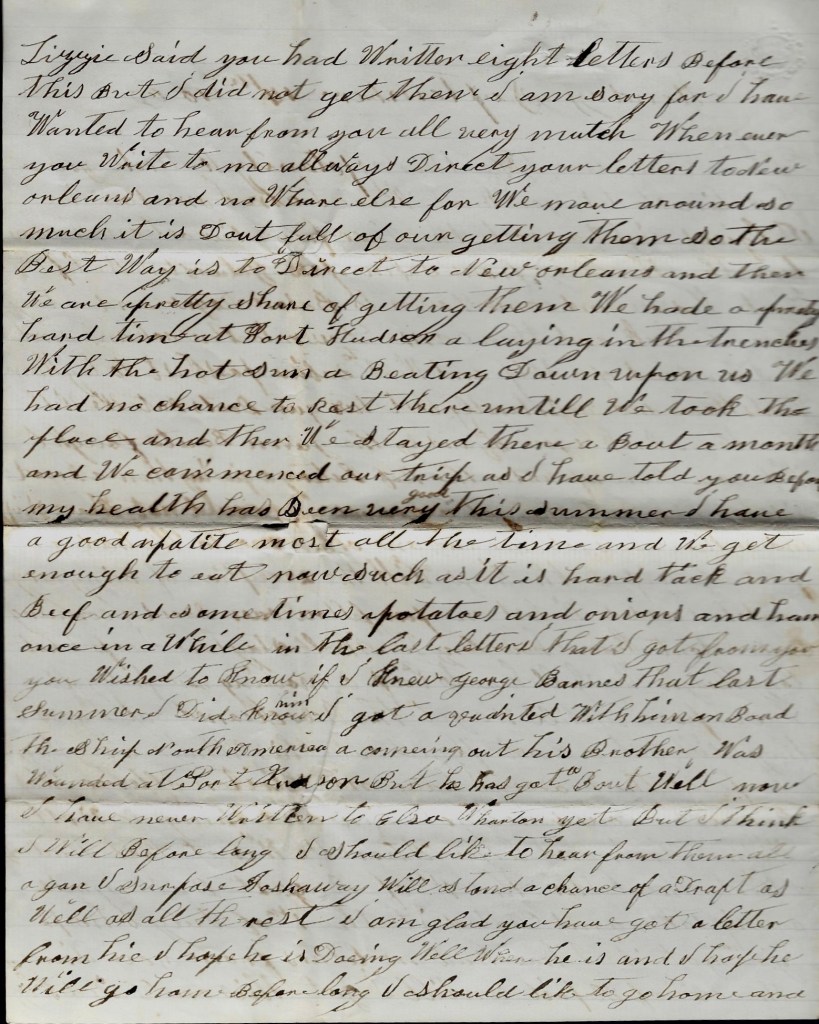 Lizzie Said you had Written eight letters Before
this But I did not get them I am sory for I have
Wanted to hear from you all very mutch When ever
you Write to me allways Direct your letters to New
orleans and no Whare else for We move around so
much it is Dout full of our getting them so the
Best Way is to Direct to New orleans and then
We are pretty share of getting them We hade a pretty
hard time at Port Hudson a laying in the trenches
With the hot sun a Beating Down upon us We
had no chance to Rest there untill We took the
place and ther We stayed there a Bout a month
and We commenced our trip as I have told you Before
my health has Been very good this summer I have
a good apatite most all the time and We get
enough to eat now such as it is hard tack and
Beef and some times potatoes and onions and ham
once in a While in the last letters that I got from you
you Wished to Know if I Knew george Barnes that last
summer I Did Know him I got a quainted With him on Boad
the Ship North America a comeing out his Brother Was
Wounded at Port Hudson But he has got a Bout Well now
I have never Written to Wharton yet But I think
I Will Before long I should like to hear from them all
a gan I surpose Will stand a chance of a Draft as
Well as all the rest I am glad you have got a letter
from hie I hope he is Doeing Well Where he is and I hope he
Will go home Before long I should like to go home and